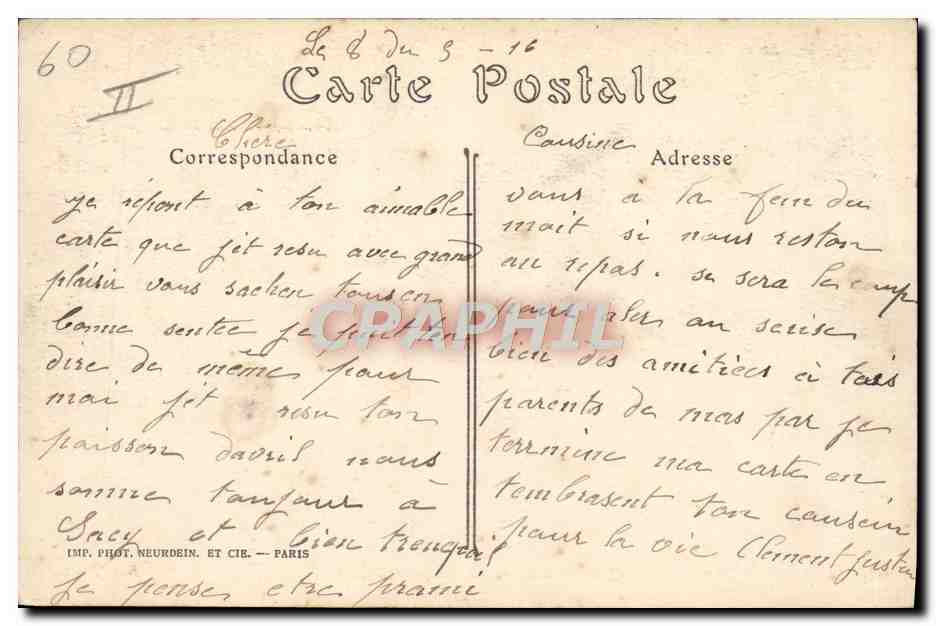 60
II
Le 8 du 5 - 16
Carte Postale
Chère Cousine
Correspondance
Adresse
je répont à ton aimable
carte que jét resu avec grand
plaisir vous sachen tous en
bonne sentée je put ten
dire de même pour
moi jét resu ton
poisson davril nous
somme toujour à
Sacy et bien trenquil
IMP. PHOT. NEURDEIN. ET CIE. — PARIS
je pense etre prami
vous a la fein du
moit si nous reston
au repas. se sera le coup
pour aler au serise
bien des amitiées à tais
parents de mas par je
termine ma carte en
tembrasent ton cousin
pour la vie Clement Justin
CPAPHIL